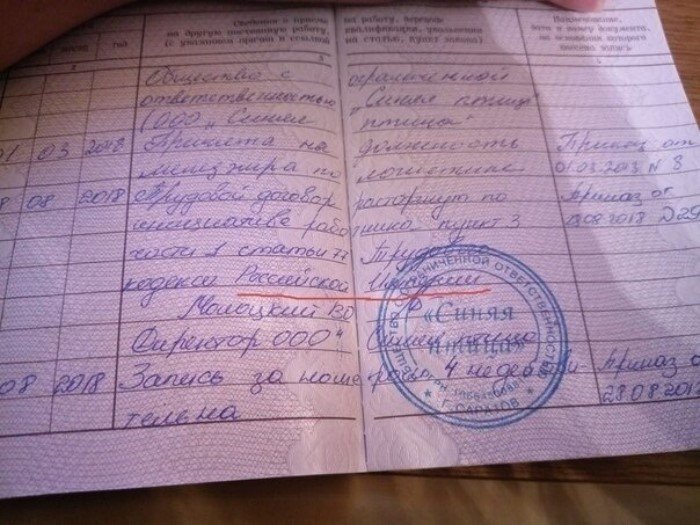 Сведения о приеме на работу, переводе
на другую постоянную работу, квалификации, увольнении
(с указанием причин и ссылкой на статью, пункт закона)
Наименование,
дата и номер документа,
на основании которого
внесена запись
месяц год
2 3 4
Общество с ограниченной
ответственностью „Синяя птица"
(ООО „Синяя птица"
01 03 2018 Принята на должность Приказ от
менеджера по логистике 01.03.2018 N 8
08 2018 Трудовой договор расторгнут по Приказ от
инициативе работника пункт 3 08.2018
части 1 статьи 77 Трудового
кодекса Российской
Директор ООО "Синяя птица
08 2018 Запись за номером 4 недействи Приказ
тельна 28.08.201
ОБЩЕСТВО С ОГРАНИЧЕННОЙ ОТВЕТСТВЕННОСТЬЮ
«Синяя
птица»
Г. САРАТОВ